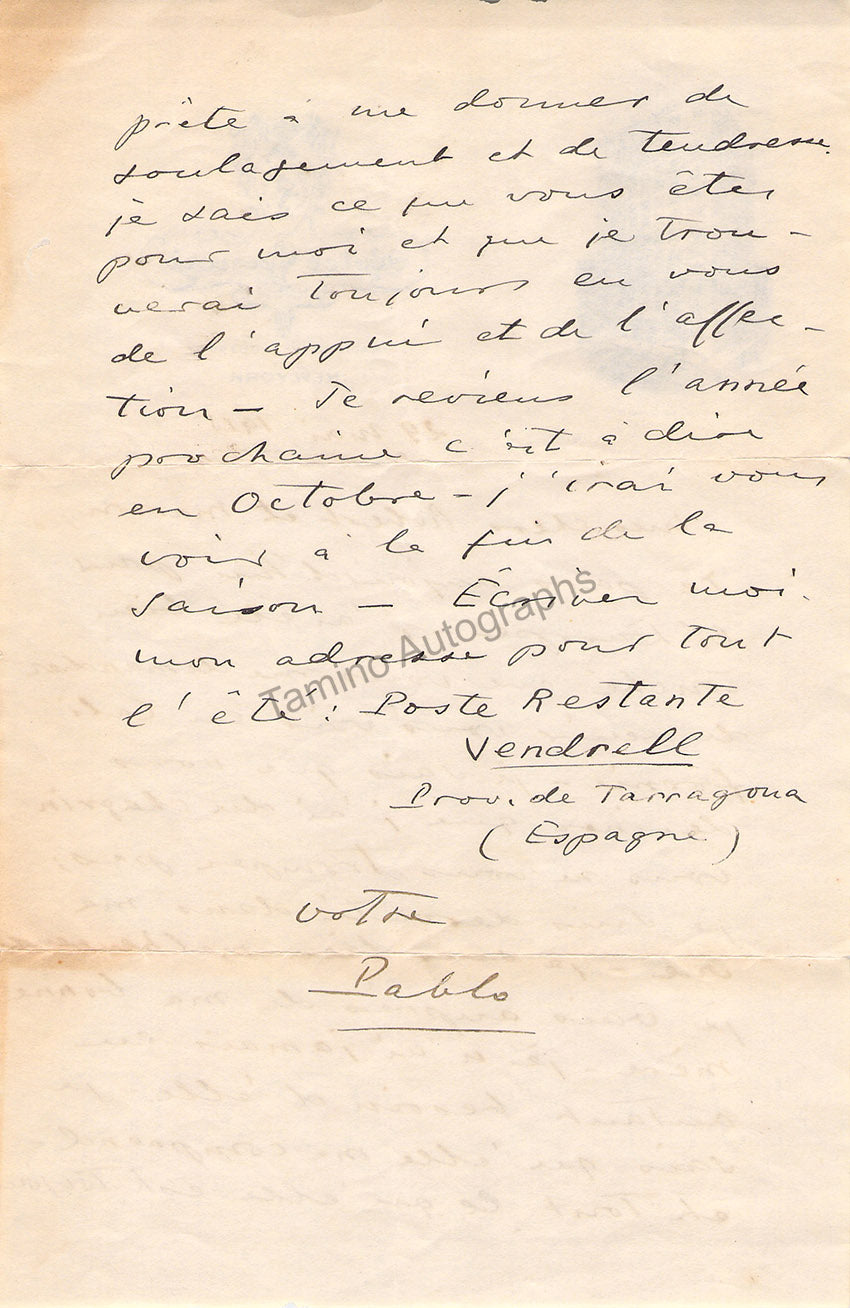 prête à me donner de
soulagement et de tendresse.
je sais ce que vous êtes
pour moi et que je trou-
verai toujours en vous
de l'appui et de l'affec-
tion — Je reviens l'année
prochaine c'est à dire
en Octobre — j'irai vous
voir à la fin de la
saison — Écrivez moi.
mon adresse pour tout
l'été : Poste Restante
Vendrell
Prov. de Tarragona
(Espagne)
votre
Pablo
Tamino Autographs